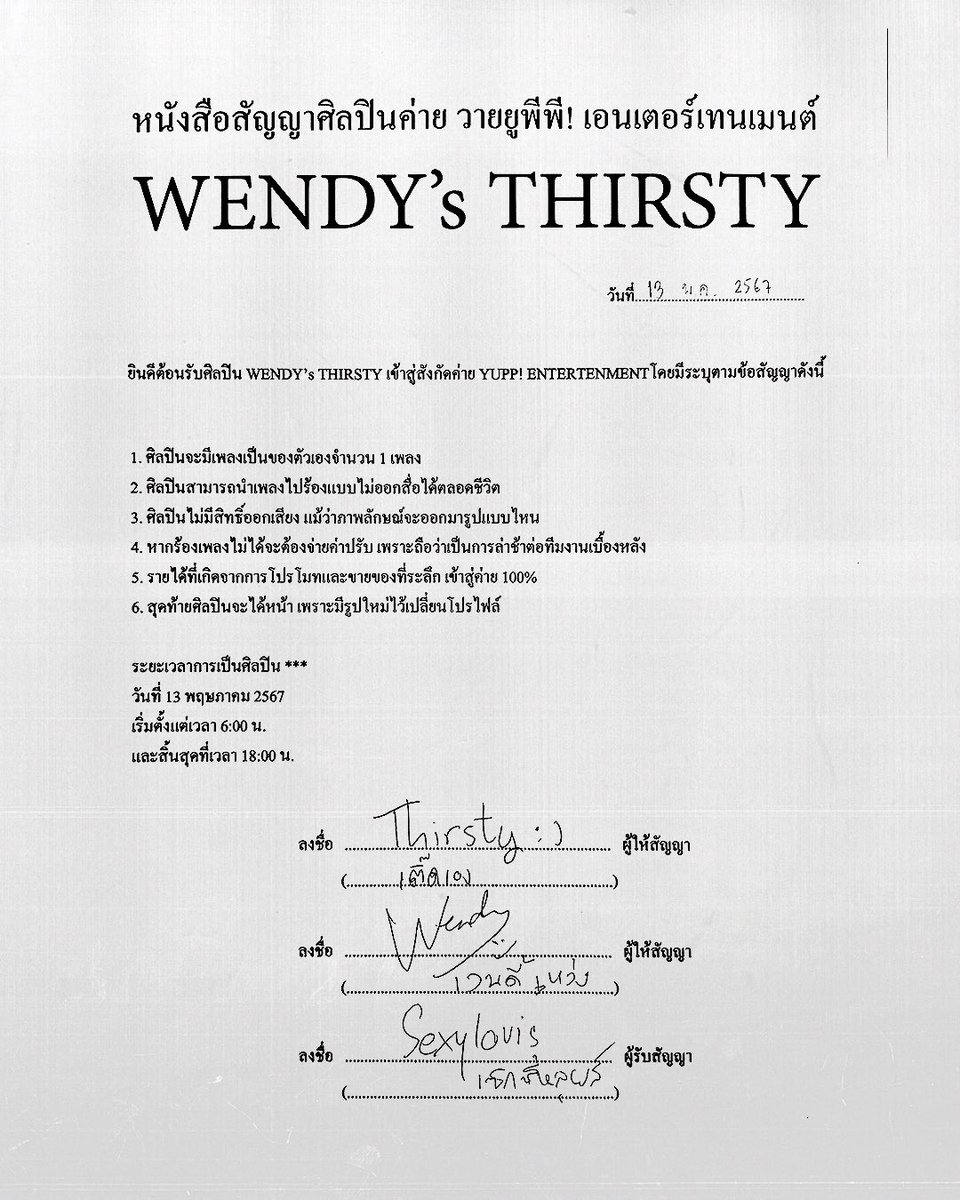 หนังสือสัญญาศิลปินค่าย วายยูพีพี! เอนเตอร์เทนเมนต์
WENDY’s THIRSTY
วันที่ 13 พ.ค. 2567
ยินดีต้อนรับศิลปิน WENDY’s THIRSTY เข้าสู่สังกัดค่าย YUPP! ENTERTENMENT โดยมีระบุตามข้อสัญญาดังนี้
1. ศิลปินจะมีเพลงเป็นของตัวเองจำนวน 1 เพลง
2. ศิลปินสามารถนำเพลงไปร้องแบบไม่ออกสื่อได้ตลอดชีวิต
3. ศิลปินไม่มีสิทธิ์ออกเสียง แม้ว่าภาพลักษณ์จะออกมารูปแบบไหน
4. หากร้องเพลงไม่ได้จะต้องจ่ายค่าปรับ เพราะถือว่าเป็นการล่าช้าต่อทีมงานเบื้องหลัง
5. รายได้ที่เกิดจากการโปรโมทและขายของที่ระลึก เข้าสู่ค่าย 100%
6. สุดท้ายศิลปินจะได้หน้า เพราะมีรูปใหม่ไว้เปลี่ยนโปรไฟล์
ระยะเวลาการเป็นศิลปิน ***
วันที่ 13 พฤษภาคม 2567
เริ่มตั้งแต่เวลา 6:00 น.
และสิ้นสุดที่เวลา 18:00 น.
ลงชื่อ Thirsty :) ผู้ให้สัญญา
(เติ๊ดเอง)
ลงชื่อ Wendy ผู้ให้สัญญา
(เวนดี้)
ลงชื่อ Sexylouis ผู้รับสัญญา